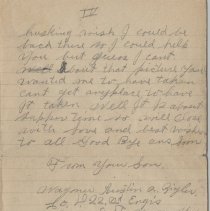 IV
husking wish I could be
back there so I could help
you but guess I cant
about that picture you
wanted me to have taken
cant get anyplace to have
it taken. Well it is about
supper time so will close
with love and best wishes
to all Good Bye and Soon
From Your Son.
Wagoner Austin A.
Co. D 22 Engrs